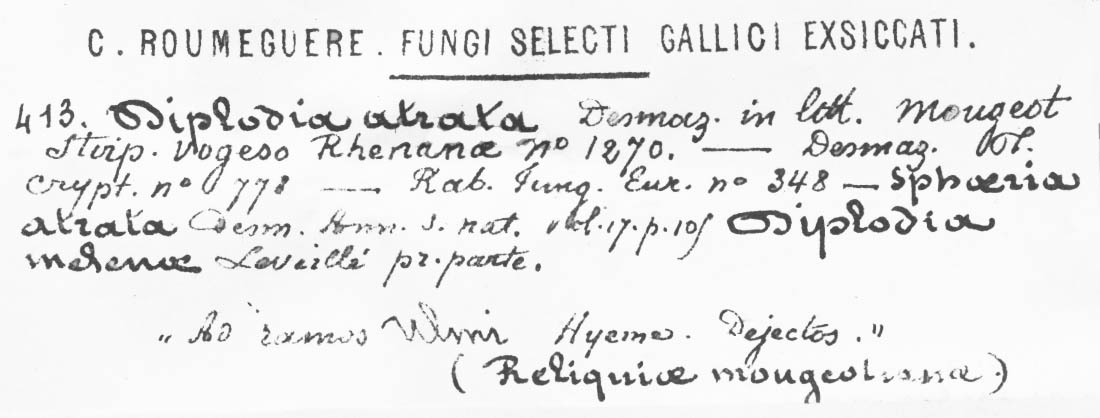 C. ROUMEGUERE. FUNGI SELECTI GALLICI EXSICCATI.
413. Diplodia atrata Desmaz. in litt. Mougeot
Stirp. Vogeso Rhenanæ nº 1270. — Desmaz. Pl.
crypt. nº 778 — Rab. Fung. Eur. nº 348 — Sphæria
atrata Desm. Ann. S. nat. vol. 17. p. 10 Diplodia
melenæ Leveillé pr. parte.
„ Ad ramos Ulmi Hyeme. Dejectos. "
( Reliquiæ mougeotianæ.)